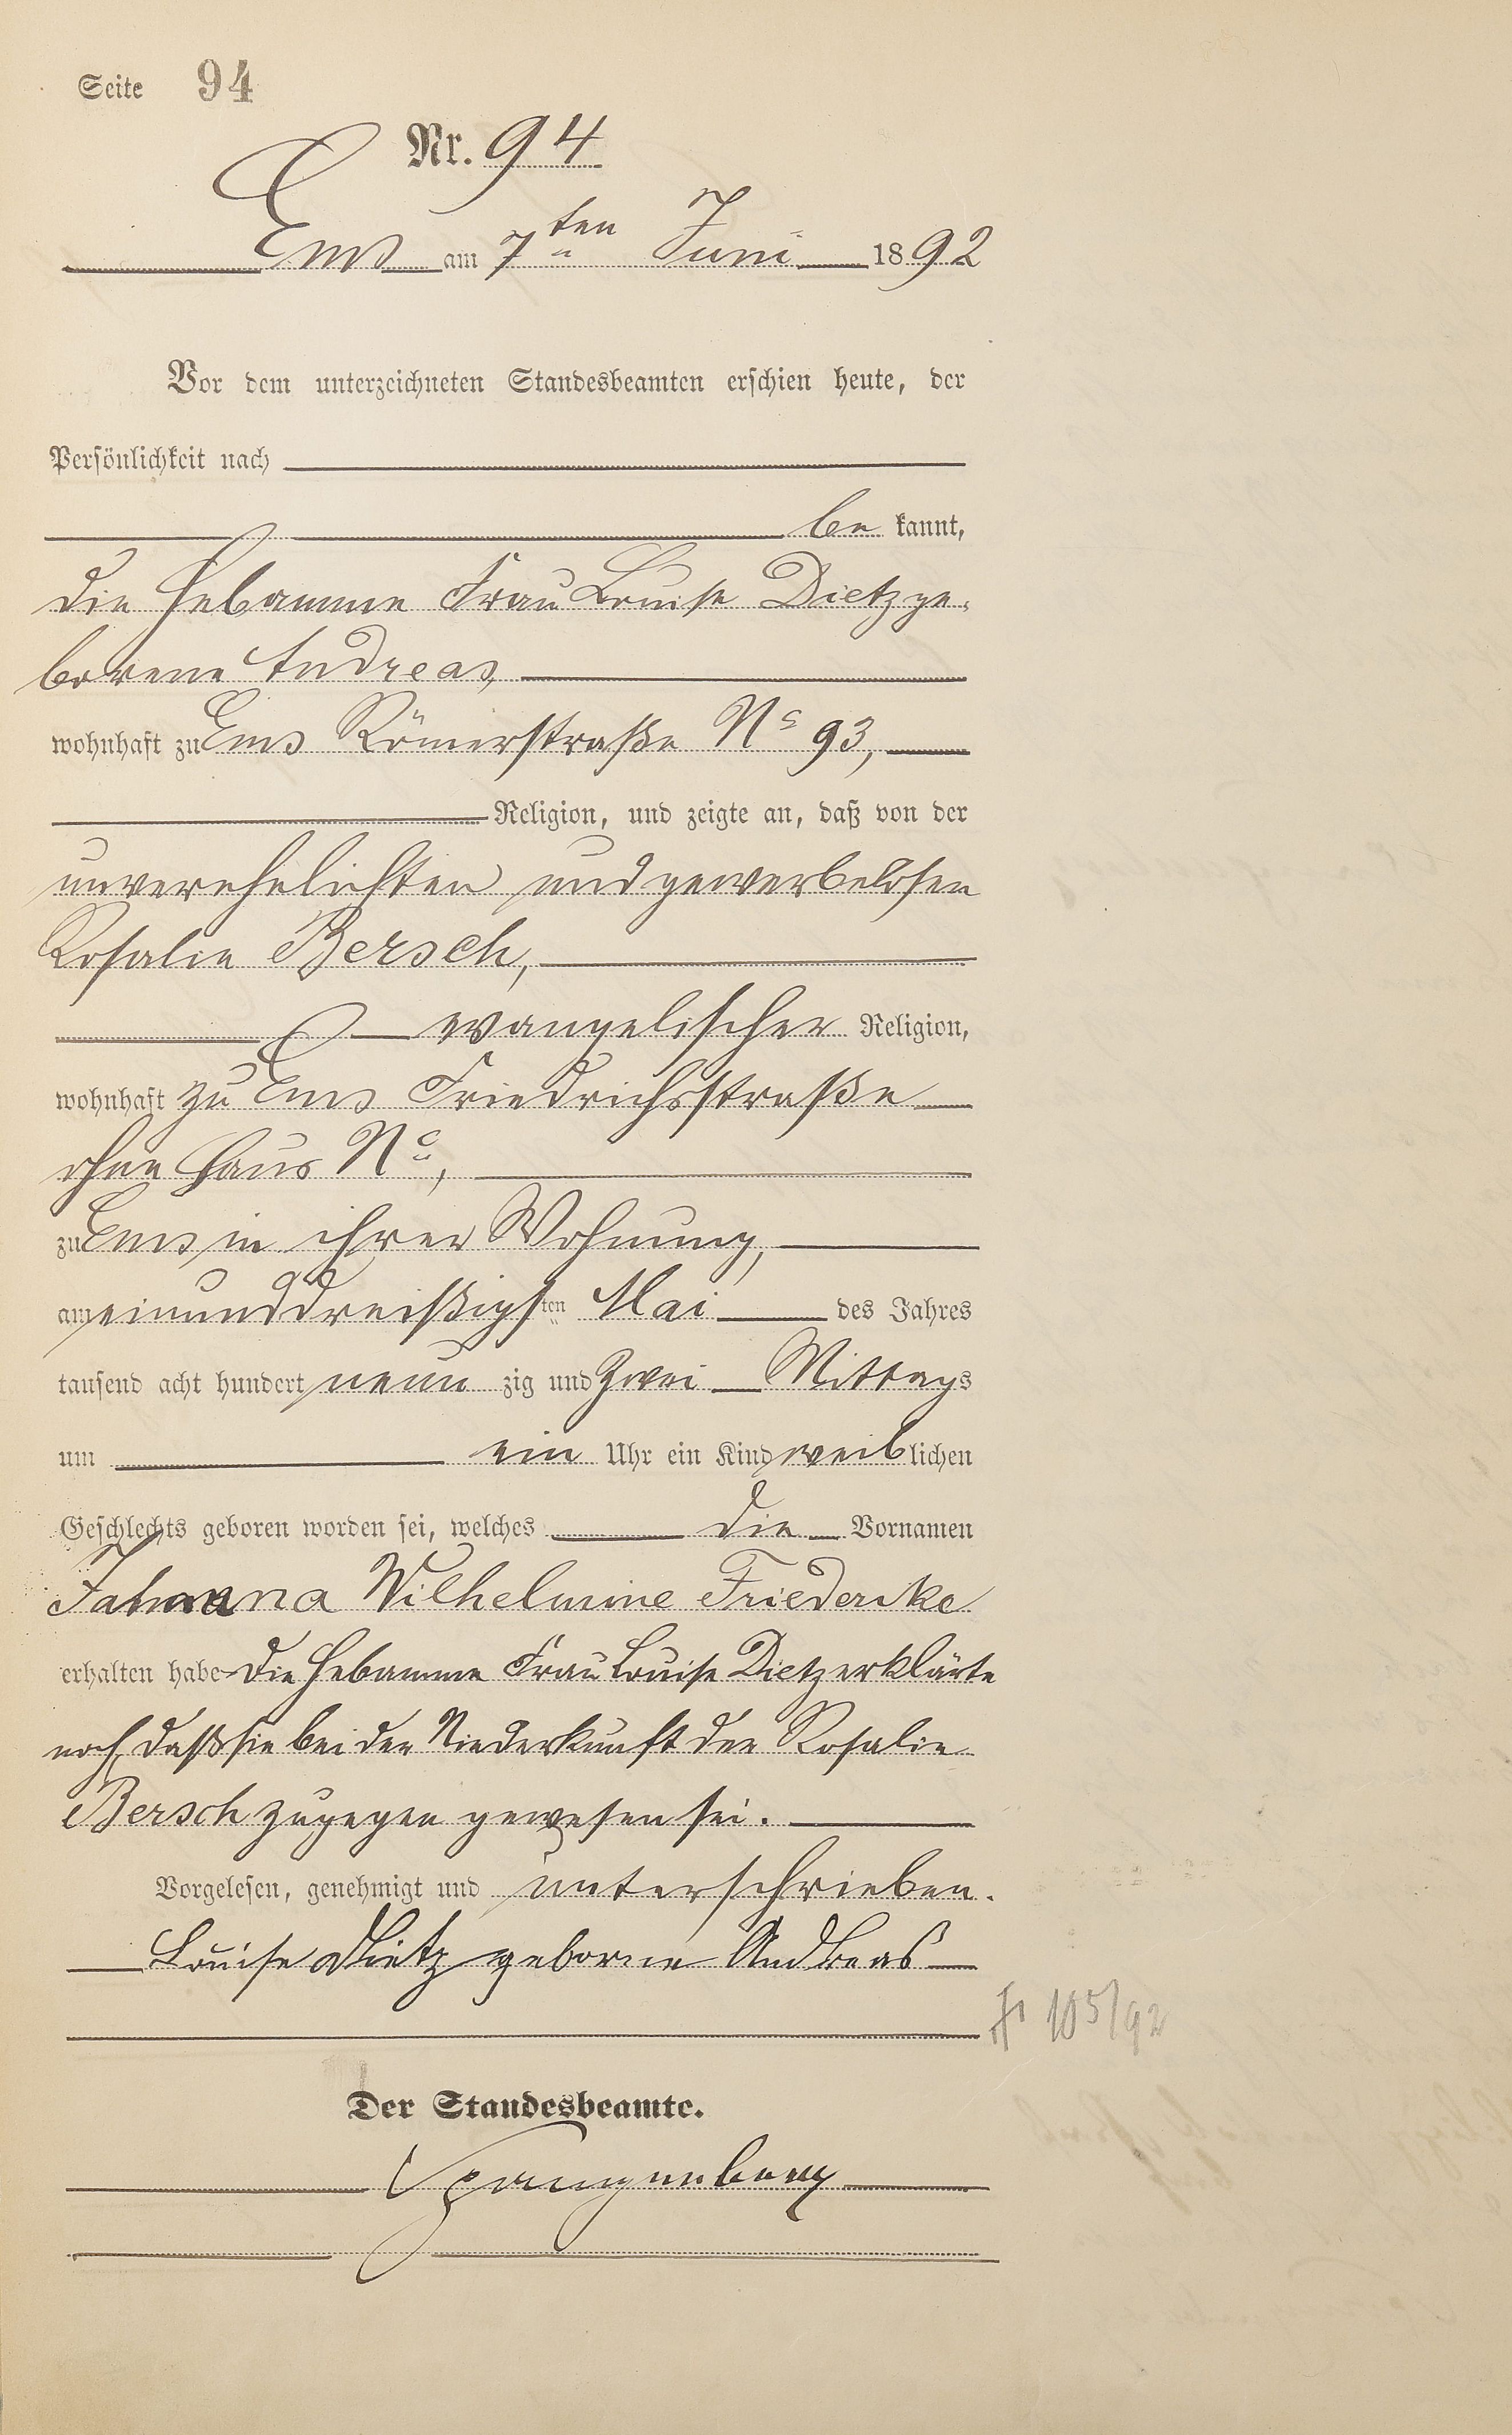 Seite 94
Nr. 94
Ems am 7ten Juni 1892
Vor dem unterzeichneten Standesbeamten erschien heute, der
Persönlichkeit nach
be kannt,
die Hebamme Frau Louise Dietz ge-
borene Andreas,
wohnhaft zu Ems Römerstraße No 93,
Religion, und zeigte an, daß von der
unverehelichten und gewerbelosen
Rosalie Bersch,
evangelischer Religion,
wohnhaft zu Ems Friedrichsstraße
ohne Haus No,
zu Ems in ihrer Wohnung,
am einunddreißigsten Mai des Jahres
tausend acht hundert neun zig und zwei Mittags
um ein Uhr ein Kind weiblichen
Geschlechts geboren worden sei, welches die Vornamen
Wilhelmine Friedericke
erhalten habe Die Hebamme Frau Louise Dietz erklärte
noch, daß sie bei der Niederkunft der Rosalie
Bersch zugegen gewesen sei.
Vorgelesen, genehmigt und unterschrieben.
Louise Dietz geborene Andreas
105/92
Der Standesbeamte.
Spangenberg